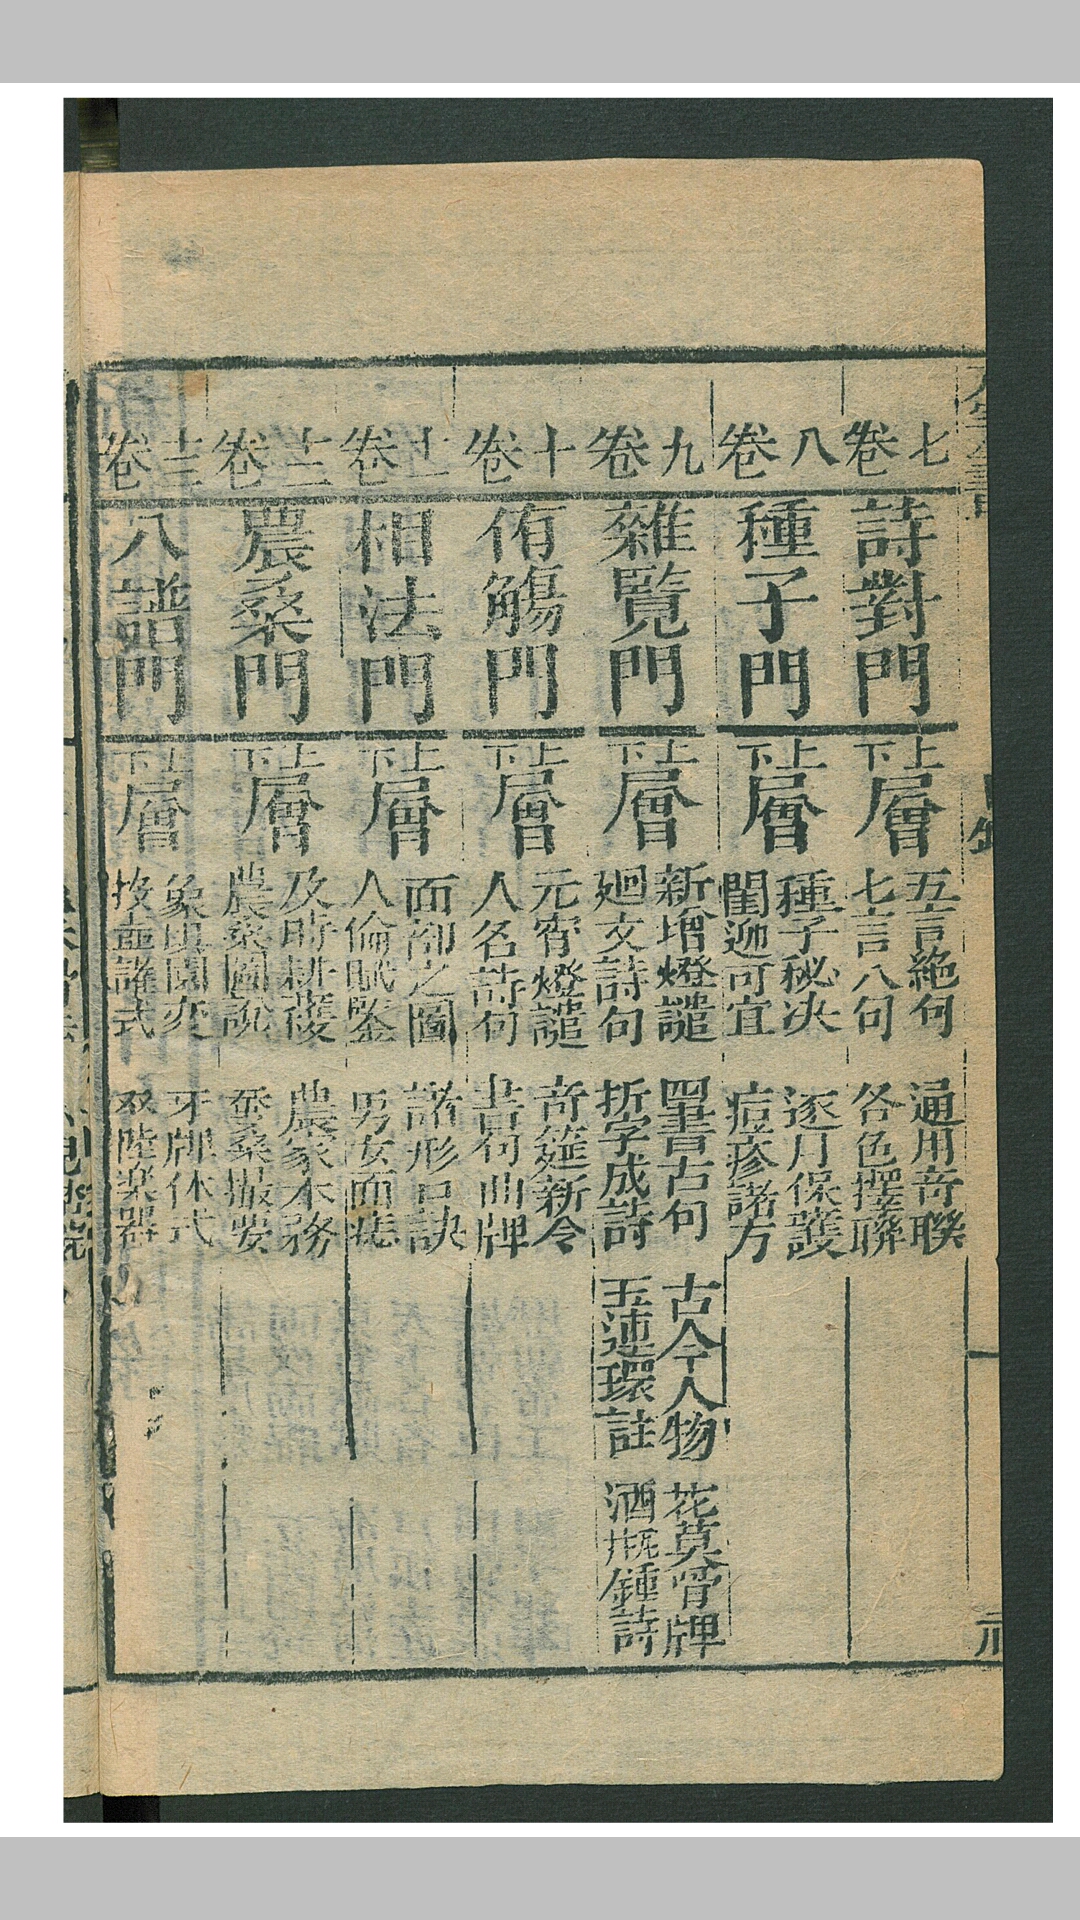 七卷 詩對門 上下層 五言絶句 七言八句 通用竒聯 各色擇聯
八卷 種子門 上下層 種子秘决 閨迎可宜 逐月保護 痘疹諸方
九卷 雜覽門 上下層 新增燈謎 廻文詩句 四書古句 拆字成詩 古今人物 玉連環註 花莫骨牌 酒瓶鍾詩
十卷 侑觴門 上下層 元宵燈謎 人名詩句 竒筵新令 書易曲牌
十一卷 相法門 上下層 面部之圖 人倫賦鑒 諸形口訣 男女面痣
十二卷 農桑門 上下層 及時耕穫 農桑圖說 農家本務 蚕桑撮要
十三卷 八譜門 上下層 象棋圍奕 投壺諸式 牙牌体式 双陸楽器